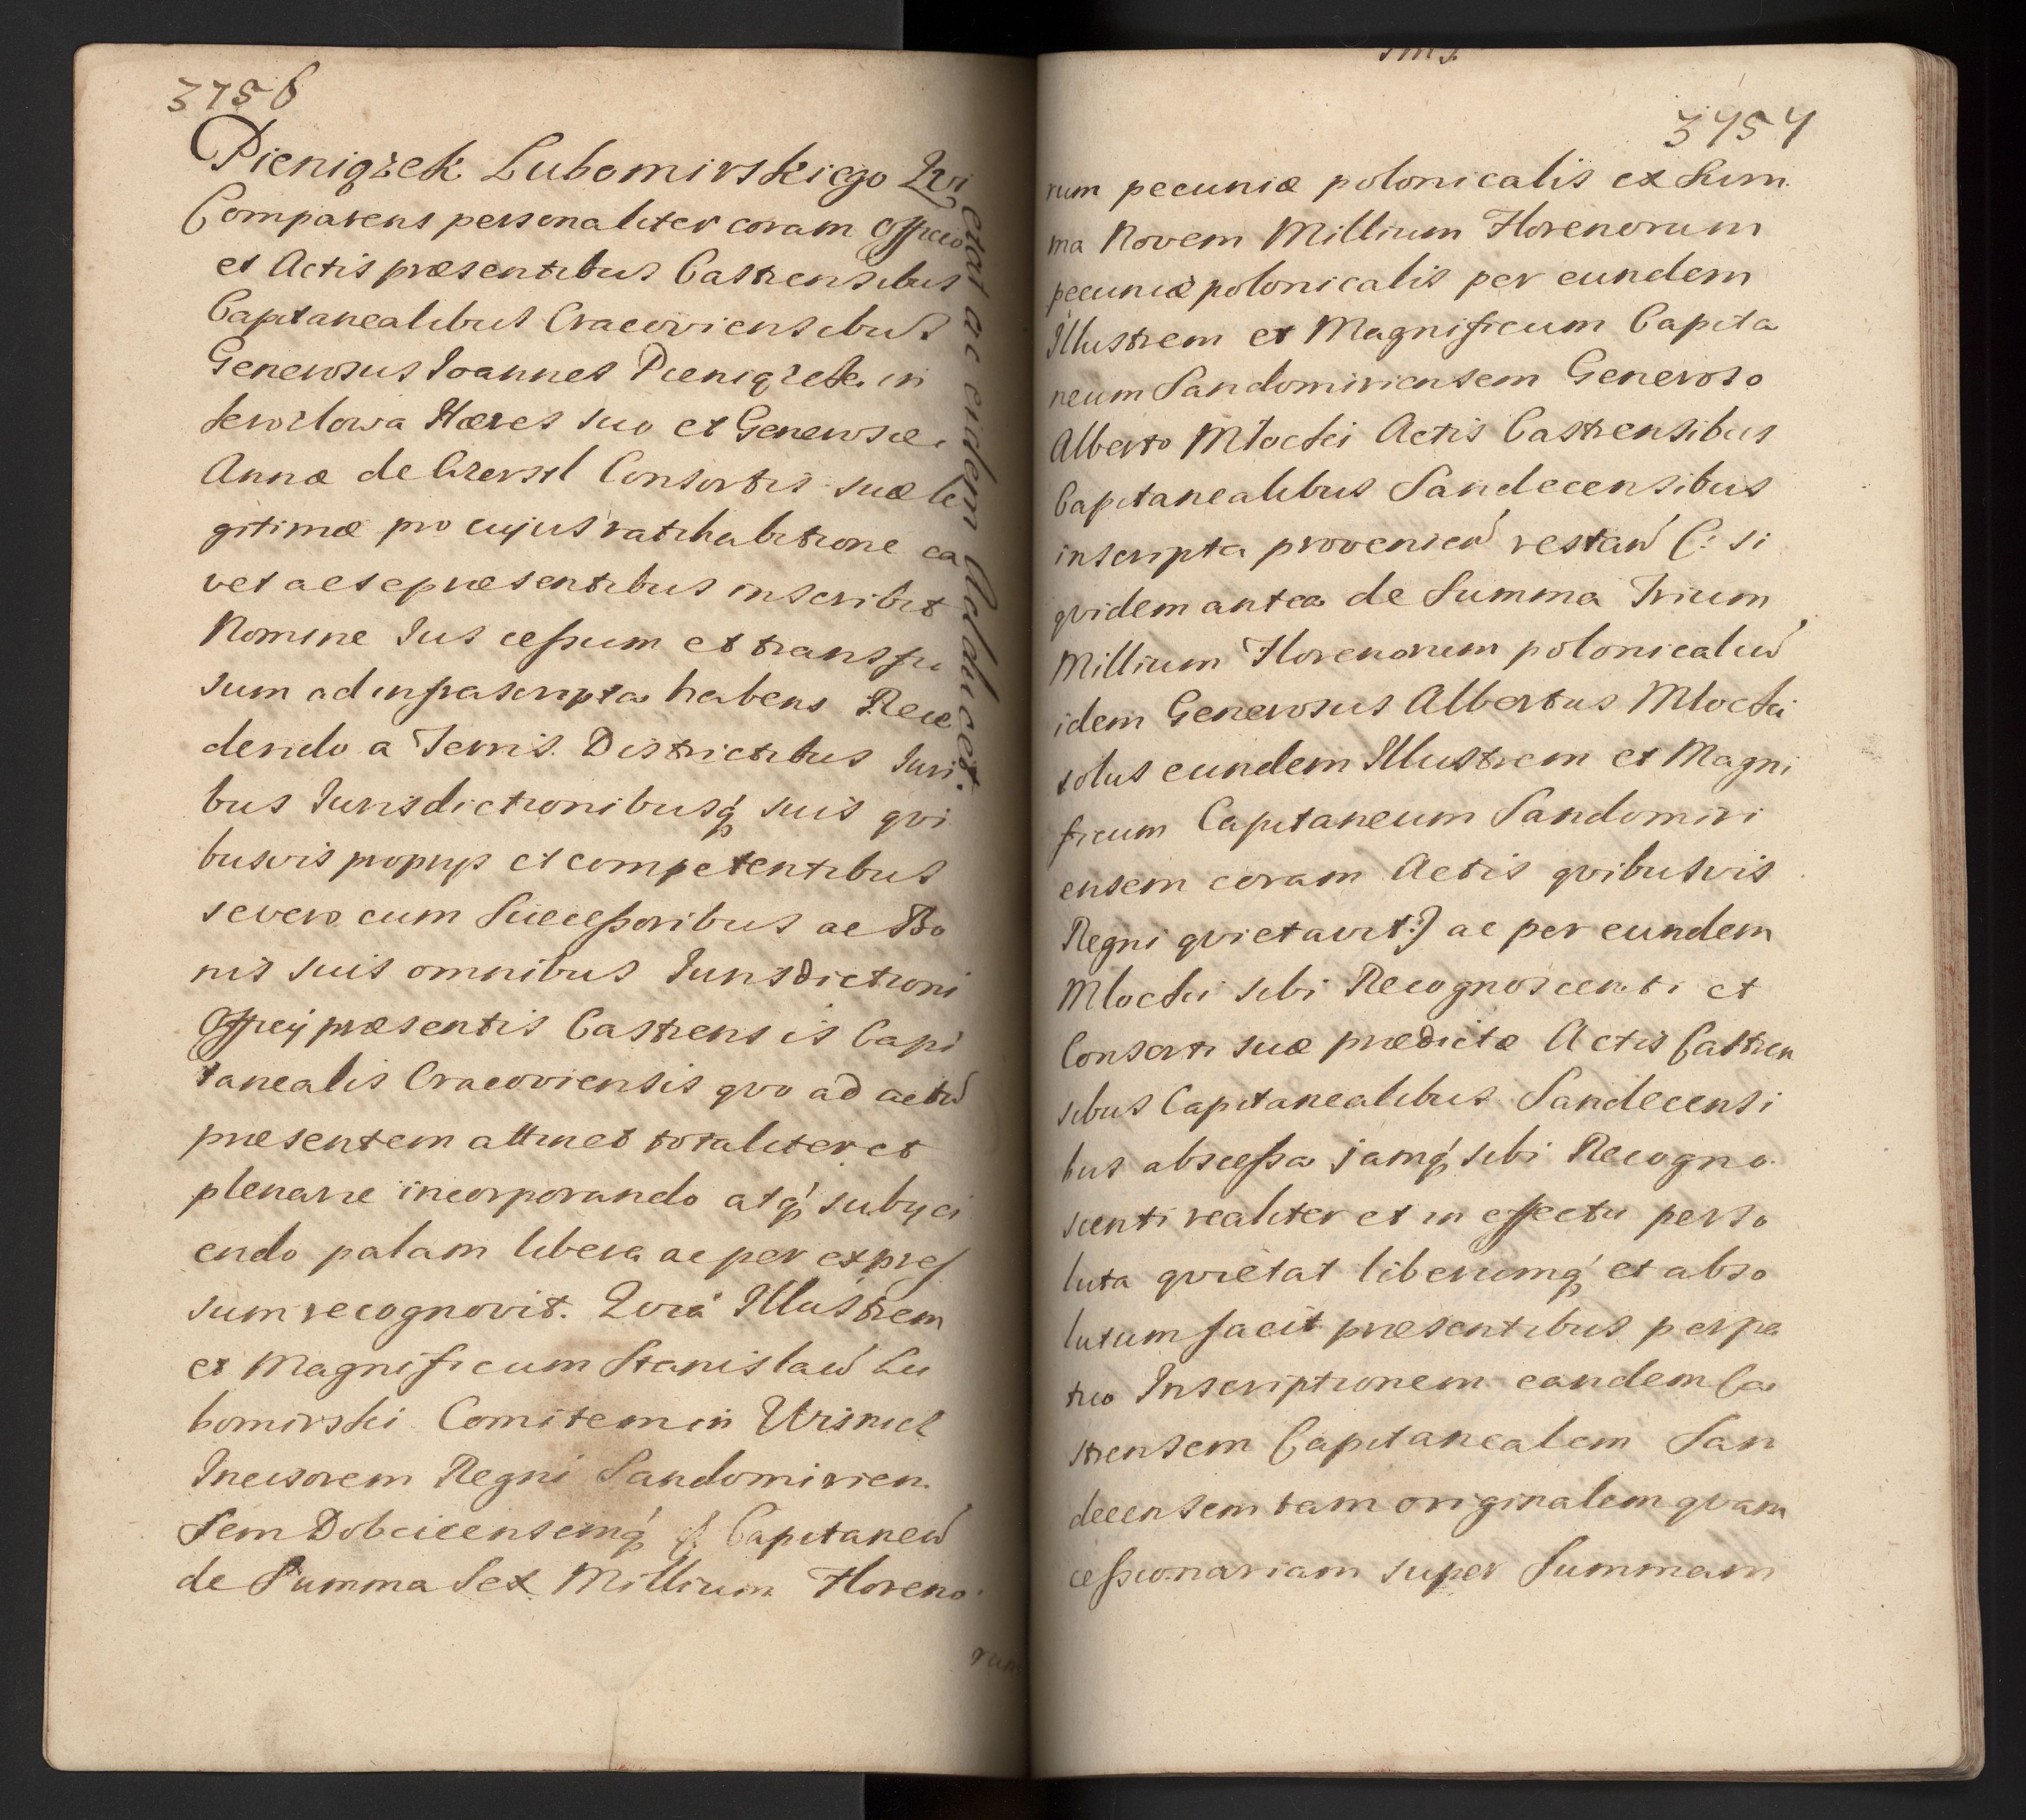 3756
Pieniążek Lubomirskiego Qvi
etat ac eidem Adducet.
Comparens personaliter coram Officio
et Actis præsentibus Castrensibus
Capitanealibus Cracoviensibus
Generosus Ioannes Pieniązek in
Hæres suo et Generosæ
Annæ de Consortis suæ le
gitimæ pro cujus ratihabitione ca
vet ac se præsentibus inscribit
Nomine Ius cessum et transfu
sum ad infrascripta habens Rece
dendo a Terris Districtibus Iuri
bus Iurisdictionibusq́ suis qvi
busvis proprijs et competentibus
se vero cum Successoribus ac Bo
nis suis omnibus Iurisdictioni
Officij præsentis Castrensis Capi
tanealis Cracoviensis qvo ad actū
præsentem attinet totaliter et
plenarie incorporando atq́ subyci
endo palam libere ac per expres
sum recognovit. Qvia Illustrem
et Magnificum Stanislaū Lu
bomirski Comitem in Wisnicz
Incisorem Regni Sandomirien.
sem Dobcicensemq́ Capitaneū
de Summa Sex Millium Floreno
rum
3757
rum pecuniæ polonicalis ex Sum
ma Novem Millium Florenorum
pecuniæ polonicalis per eundem
Illustrem et Magnificum Capita
neum Sandomiriensem Generoso
Alberto Młocki Actis Castrensibus
Capitanealibus Sandecensibus
inscripta provenieñ restañ (: si
qvidem antea de Summa Trium
Millium Florenorum polonicaliū
idem Generosus Albertus Mlocki
solus eundem Illustrem et Magni
ficum Capitaneum Sandomiri
ensem coram Actis qvibusvis
Regni qvietavit:) ac per eundem
Mlocki sibi Recognoscenti et
Consorti suæ prædictæ Actis Castren
sibus Capitanealibus Sandecensi
bus abscessa jamq́ sibi Recogno
scenti realiter et in effectu perso
luta qvietat liberumq́ et abso
lutum facit præsentibus perpe
tuo Inscriptionem eandem Ca
strensem Capitanealem San
decensem tam originalem qvam
cessionariam super Summam